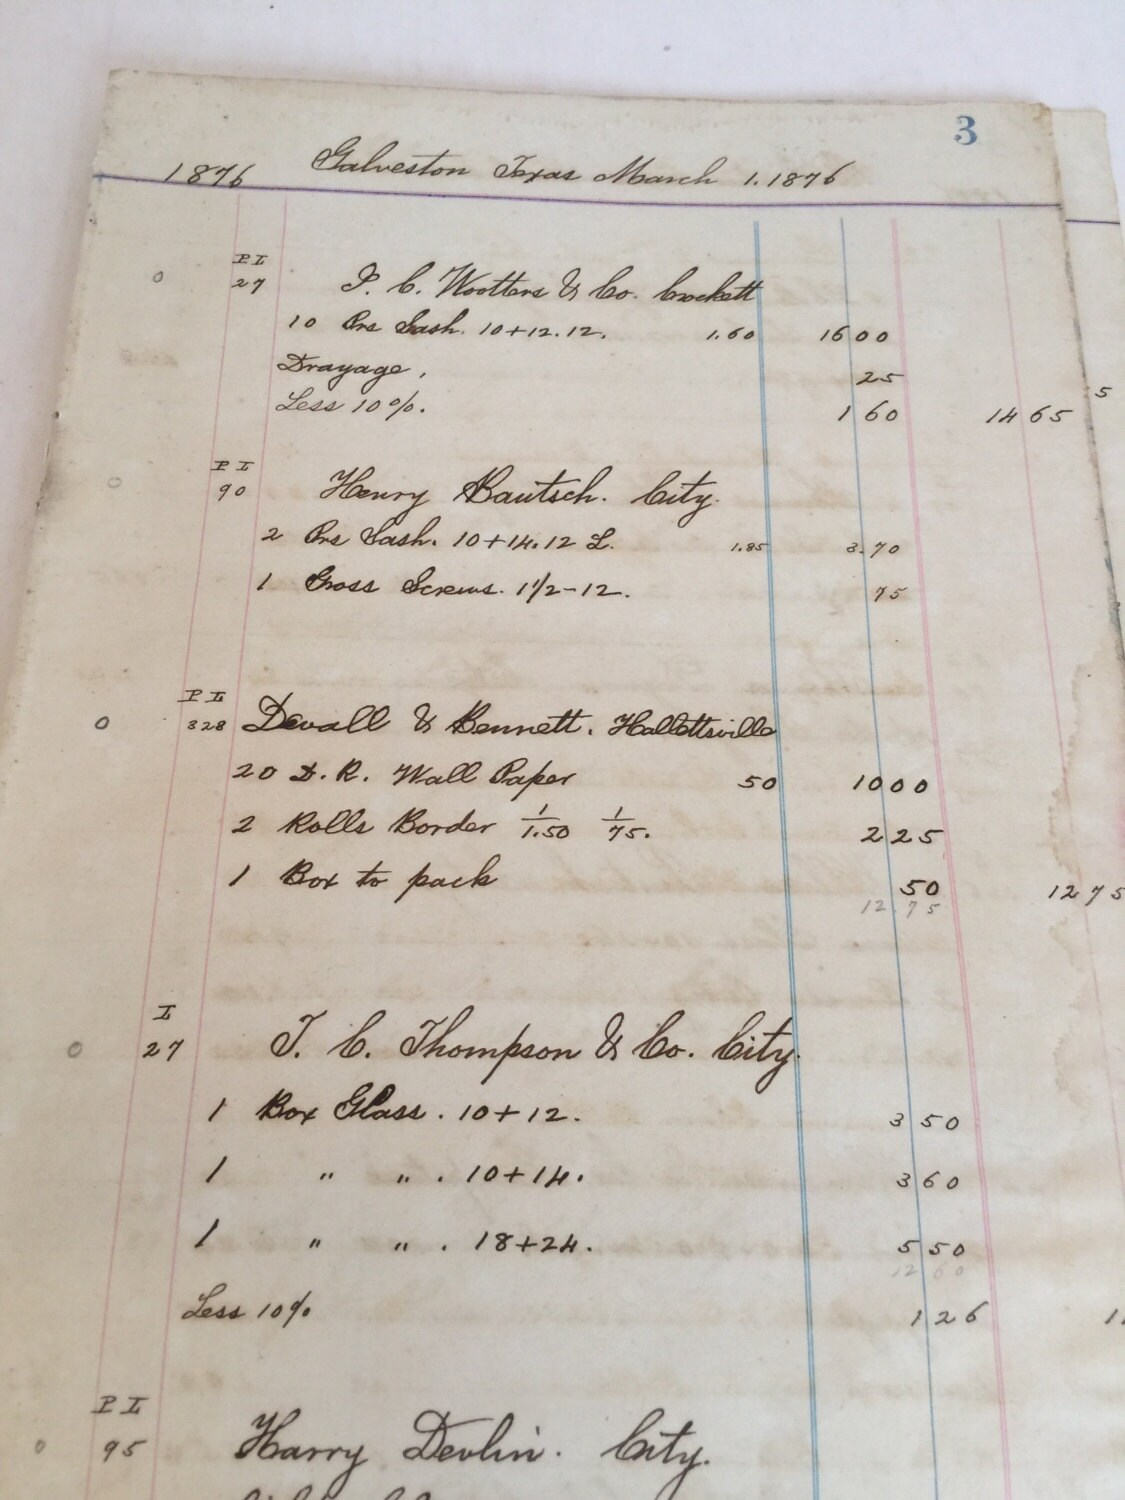 3
1876 Galveston Texas March 1. 1876
P L
27 J. C. Wootters & Co. Crockett
10 Prs Sash. 10+12.12. 1.60 16 00
Drayage. 25
Less 10%. 1 60 14 65
5
P L
90 Henry Bautsch. City.
2 Prs Sash. 10+14.12 L. 1.85 3.70
1 Gross Screws. 1 1/2-12. 75
P L
328 Devall & Bennett. Hallettsville
20 D. R. Wall Paper 50 10 00
2 Rolls Border 1/1.50 1/75. 2 25
1 Box to pack 50 12 75
12 75
L
27 T. C. Thompson & Co. City.
1 Box Glass. 10+12. 3 50
1 " " . 10+14. 3 60
1 " " . 18+24. 5 50
12 60
Less 10% 1 26
P L
95 Harry Devlin. City.